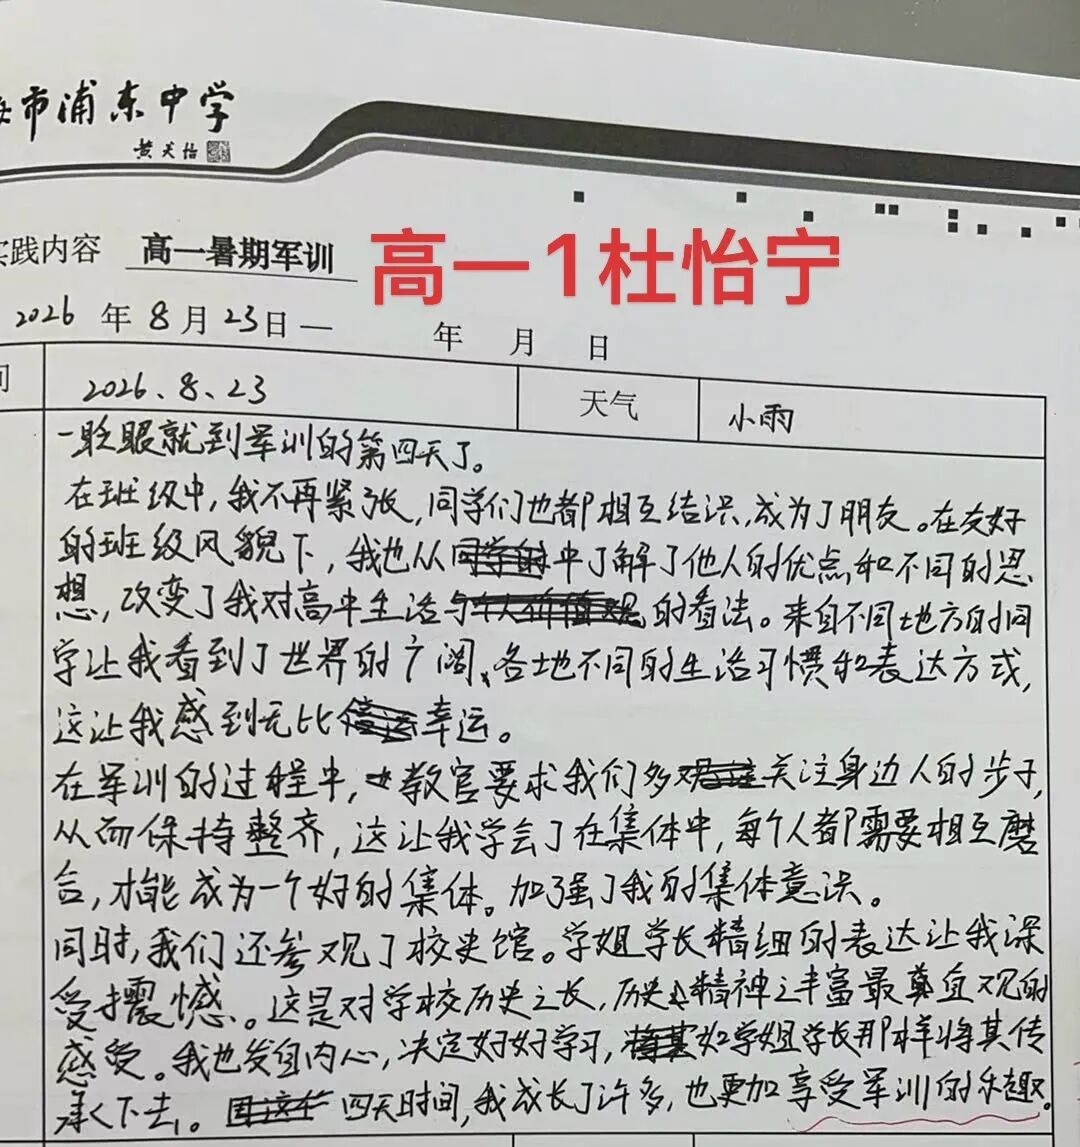 市浦东中学
黄炎培
实践内容 高一暑期军训 高一1杜怡宁
2026 年 8 月 23 日 — 年 月 日
2026.8.23 天气 小雨
一眨眼就到军训的第四天了。
在班级中，我不再紧张，同学们也都相互结识，成为了朋友。在友好
的班级风貌下，我也从中了解了他人的优点和不同的思
想，改变了我对高中生活的看法。来自不同地方的同
学让我看到了世界的广阔、各地不同的生活习惯和表达方式，
这让我感到无比幸运。
在军训的过程中，教官要求我们多关注身边人的步子，
从而保持整齐，这让我学会了在集体中，每个人都需要相互磨
合，才能成为一个好的集体。加强了我的集体意识。
同时，我们还参观了校史馆。学姐学长精细的表达让我深
受撼。这是对学校历史之长，历史精神之丰富最真直观的
感受。我也发自内心，决定好好学习，如学姐学长那样将其传
承下去。四天时间，我成长了许多，也更加享受军训的乐趣。